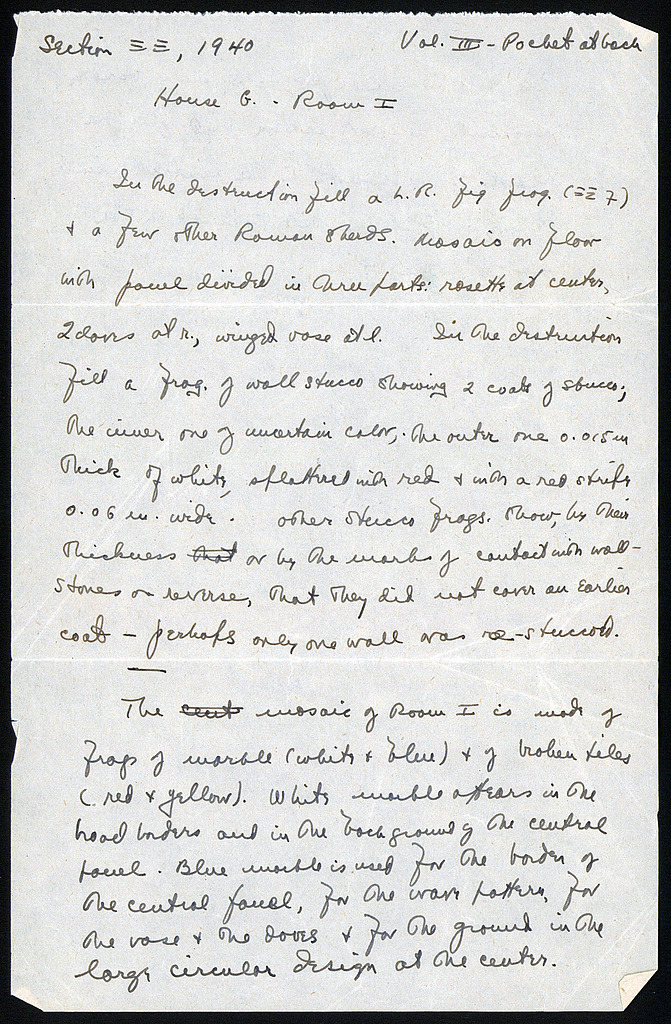 Section ΞΞ, 1940 Vol. III - Pocket at back
House G. - Room I
In the destruction fill a L.R. fig frag. (ΞΞ 7)
& a few other Roman sherds. Mosaic on floor
with panel divided in three parts: rosette at center,
2 doves at r., winged vase at l. In the destruction
fill a frag. of wall stucco showing 2 coats of stucco;
the inner one of uncertain color, the outer one 0.015 m
thick of white, splattered with red & with a red stripe
0.06 m. wide. Other stucco frags. show, by their
thickness that or by the marks of contact with wall-
stones on reverse, that they did not cover an earlier
coat - perhaps only one wall was re-stuccoed.
The cent mosaic of Room I is made of
frags of marble (white & blue) & of broken tiles
(red & yellow). White marble appears in the
broad borders and in the background of the central
panel. Blue marble is used for the border of
the central panel, for the wave pattern, for
the vase & the doves & for the ground in the
large circular design at the center.